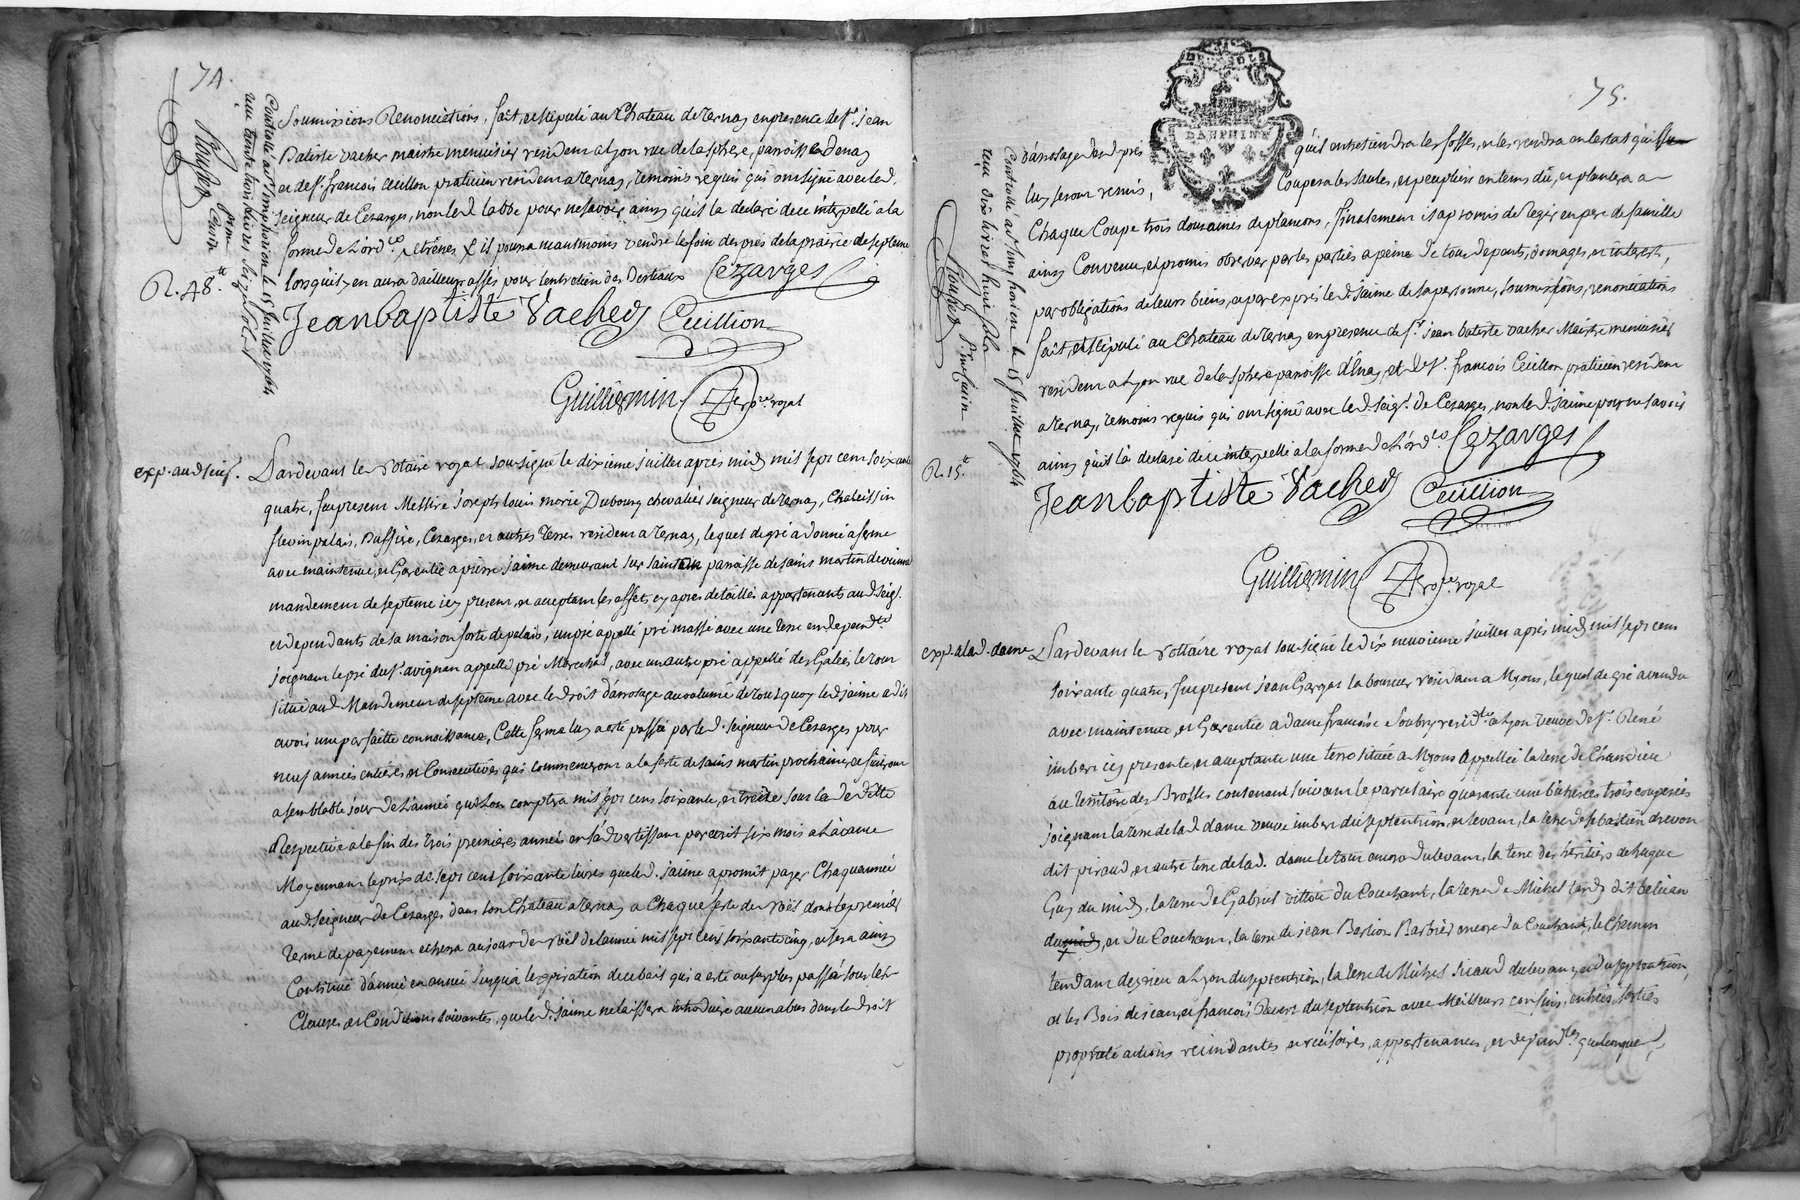 74.
Soumissions Renonciations, fait, et stipulé au Chateau de Ternay en presence de sr. jean
Batiste vacher maistre menuisier resident a Lyon rue de la sphere, paroisse denay
et de sr. francois Ceuillon praticien resident a Ternay, temoins requis qui ont signé avec led.
seigneur de Cezarges, non led Labbe pour ne savoir ainsy qu'il la declaré de ce interpellé a la
forme de L'ordce il pourra neantmoins vendre le foin des prés de la prairie de septeme
lorsquil y en aura d'ailleurs assés pour l'entretien des Bestiaux Cezarges
Jeanbaptiste Vacher Ceuillion
Guilliermin No.re royal
R. 48.
Controllé a st. simphorien le 15 juillet 1764
reçu trente
exp. aud seigr.
Pardevant le Notaire royal sousigné le dixieme juillet apres midy mil sept cent soixante
quatre, fut present Messire joseph louis marie Dubourg chevalier seigneur de Ternay, Chaleissin
flevin palais, Buffiere, Cezarges, et autres Terres resident a Ternay, lequel de gré a donné a ferme
avec maintenue, et Garentie a pierre jaime demeurant sur saint paroisse de saint martin de vienne
mandement de septeme icy present, et acceptant les effets cy apres detaillés appartenants aud. seigr.
et dependants de sa maison forte de palais, un pré appellé pré massé avec une Terre en dependte
joignant le pré du sr. avignon appellé pré Marechal, avec un autre pré appellé des Galées le tout
situé aud Mandement de septeme avec le droit d'arrosage accoutumé de tout quoy led jaime a dit
avoir une parfaitte connoissance, Cette ferme luy a eté passée par led. seigneur de Cezarges pour
neuf années entieres, et Consecutives qui commenceront a la feste de saint martin prochaine, et finiront
a semblable jour de L'année que L'on comptra mil sept cent soixante, et treize sous la dedite
Respective a la fin des trois premieres années en s'advertissant par ecrit six mois a L'avance
Moyennant le prix de sept cent soixante livres que led. jaime a promis payer Chaque année
aud seigneur de Cezarges dans son Chateau a Ternay a Chaque feste de Noël dont le premier
Terme de payement echerra au jour de Noël de L'année mil sept cent soixante cinq, et sera ainsy
Continué d'année en année jusqu'a l'expiration de ce bail qui a eté au surplus passé sous les
Clauses, et Conditions suivantes, que led. jaime ne laissera introduire aucun abus dans le droit
75.
DAUPHINE
d'arrosage desd prés qu'il entretiendra les fosses, et les rendra en l'estat qu'ils
luy seront remis, Coupera les saules, et peupliers en tems dû, et plantera a
Chaque Coupe trois douzaines de plançons, finalement il a promis de Regir en pere de famille
ainsy Convenu, et promis observer par les parties a peine de tous depents, domages, et interest,
par obligations de leurs biens, et par exprés led. jaime de sa personne, soumissions, renonciations
fait, et stipulé au Chateau de Ternay en presence de sr. jean batiste vacher Maistre menuisier
resident a Lyon rue de la sphere paroisse d'Enay, et de sr. françois Ceuillon praticien resident
a Ternay, temoins requis qui ont signé avec led. seigr. de Cezarges, non led. jaime pour ne savoir
ainsy qu'il la declaré de ce interpellé a la forme de L'ordce Cezarges
Jeanbaptiste Vacher Ceuillion
Guilliermin No.re royal
R. 15.
Controllé a st. simphorien le 15 juillet 1764
reçu
exp. a lad. dame
Pardevant le Notaire royal sousigné le dix neuvieme juillet apres midy mil sept cent
soixante quatre, fut present jean Gargat laboureur resident a Myons, lequel de gré a vendu
avec maintenue, et Garentie a dame françoise Soubry residte a Lyon veuve de sr. René
imbert icy presente, et acceptante une terre située a Myons appellée la terre de Chandieu
au Territoire des Brosses contenant suivant le parcelaire quarante une bicherées trois couperées
joignant la terre de lad dame veuve imbert du septentrion, et levant, la terre de sebastien drevon
dit piraud, et autre terre de lad. dame le tout encore du levant, la terre des héritiers de hugue
Guy du midy, la terre de Gabriel vitton du Couchant, la terre de Michel
du midy, et du Couchant, la terre de jean Bertion Barbier encore du Couchant, le Chemin
tendant d'heyrieu a Lyon du septentrion, la terre de Michel Sicaud du levant, et du septentrion,
et les Bois de jean, et françois du septentrion avec Meilleurs confins, entrées, sorties
proprieté actions rescindantes et recisoires, appartenances, et dependces quelconques,